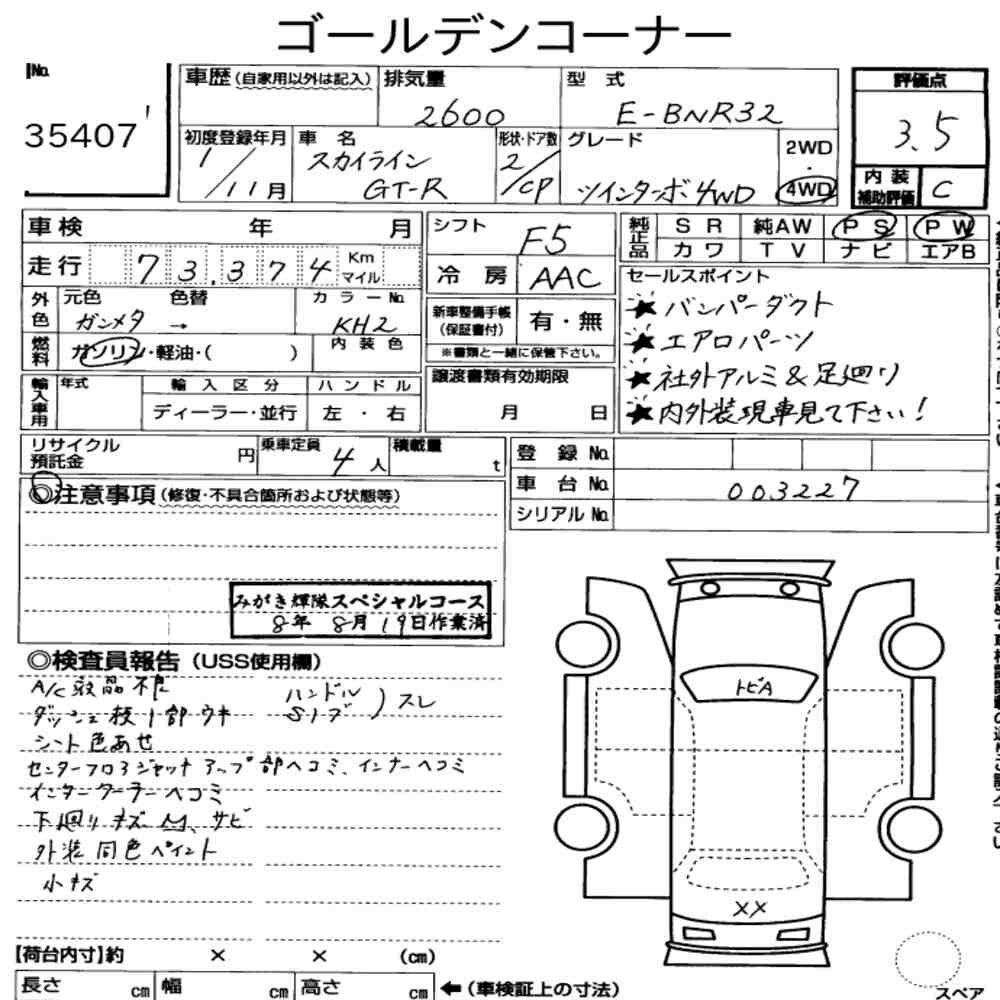 ゴールデンコーナー
No.
35407
車歴(自家用以外は記入)
排気量
2600
型 式
E-BNR32
評価点
3.5
初度登録年月
1/11月
車 名
スカイライン
GT-R
形状・ドア数
2/CP
グレード
ツインターボ4WD
2WD
・
4WD
内 装
補助評価
C
車検 年 月
シフト
F5
純正品
SR 純AW PS PW
カワ TV ナビ エアB
走行 73,374 Km
マイル
冷 房
AAC
セールスポイント
★バンパーダクト
★エアロパーツ
★社外アルミ&足廻り
★内外装現車見て下さい!
外色
元色 色替
ガンメタ →
カラーNo.
KH2
新車整備手帳
(保証書付)
有・無
※書類と一緒に保管下さい。
燃料
ガソリン・軽油・( )
内装色
輸入車用
年式
輸入区分
ディーラー・並行
ハンドル
左 ・ 右
譲渡書類有効期限
月 日
リサイクル
預託金
円
乗車定員
4人
積載量
t
登 録 No.
車 台 No.
003227
シリアル No.
◎注意事項(修復・不具合箇所および状態等)
みがき輝隊スペシャルコース
8年 8月 19日作業済
◎検査員報告(USS使用欄)
A/C液晶不良
ダッシュ板1部ウキ
シート色あせ
ハンドル
Sノブ
)スレ
センターフロアジャッキアップ部ヘコミ、インナーヘコミ
インタークーラーヘコミ
下廻りキズ、サビ
外装同色ペイント
小キズ
トビA
XX
【荷台内寸】約 × × (cm)
長さ cm 幅 cm 高さ cm
←(車検証上の寸法)
スペア